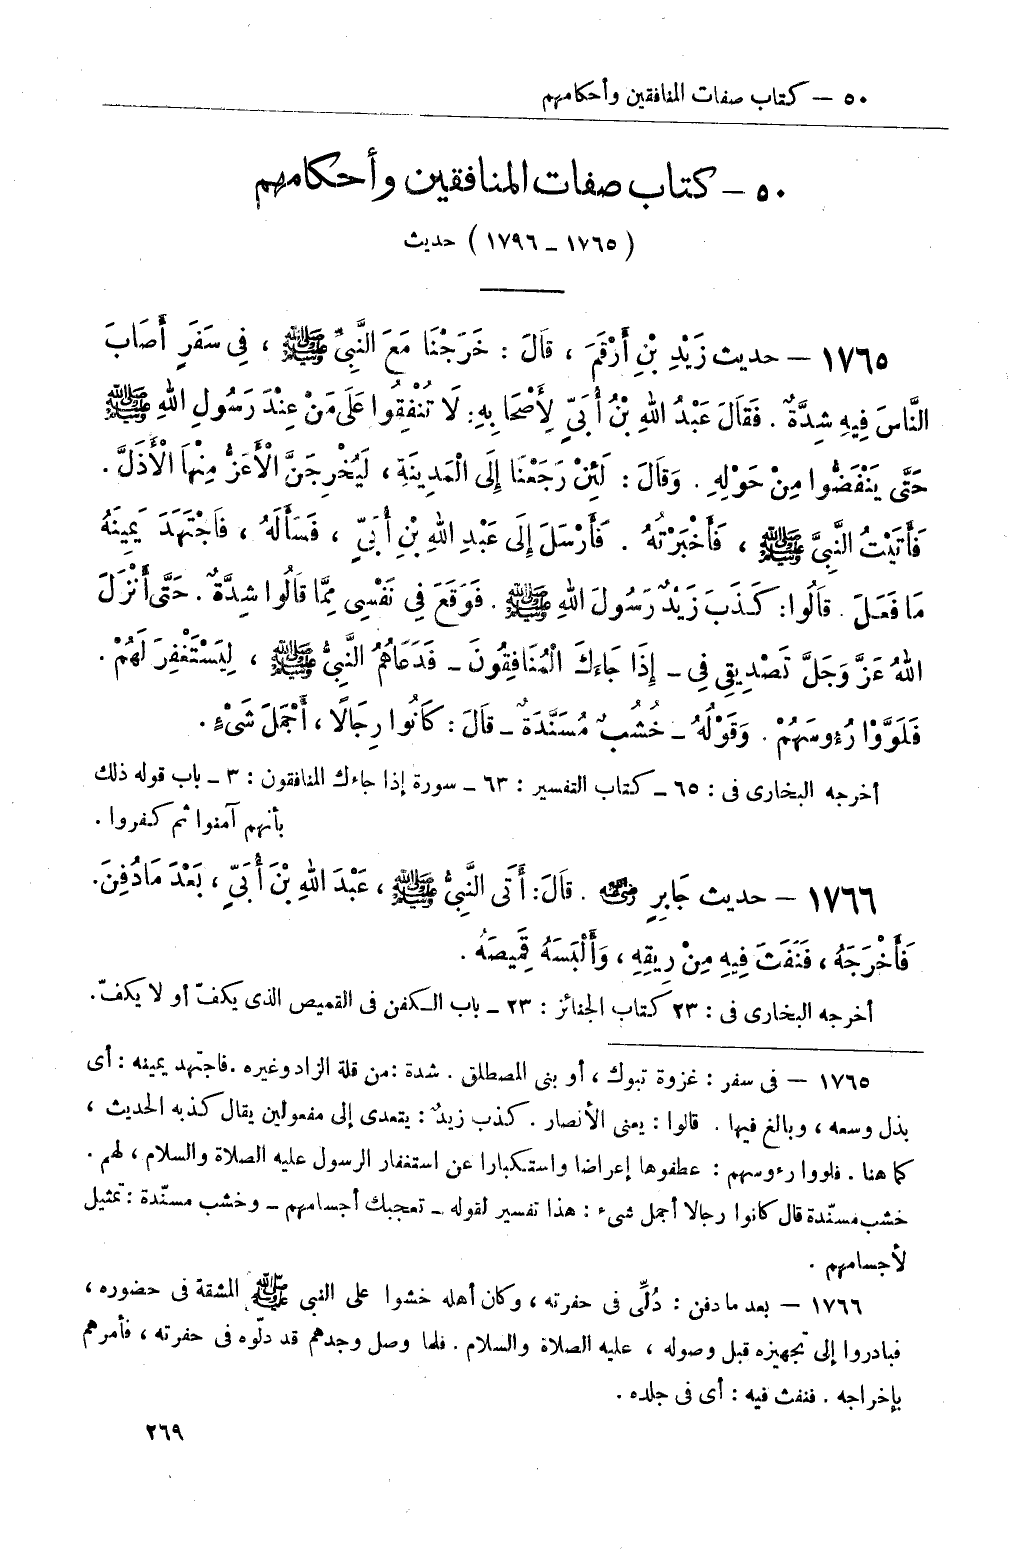 ٥٠ – كتاب صفات المنافقين وأحكامهم
٥٠ – كتاب صفات المنافقين وأحكامهم
(١٧٦٥ – ١٧٩٦) حديث
١٧٦٥ – حديث زَيْدِ بْنِ أَرْقَمَ ، قَالَ : خَرَجْنَا مَعَ النَّبِىِّ ﷺ ، فِى سَفَرٍ أَصَابَ
النَّاسَ فِيهِ شِدَّةٌ . فَقَالَ عَبْدُ اللهِ بْنُ أُبَىٍّ لِأَصْحَابِهِ : لَا تُنْفِقُوا عَلَى مَنْ عِنْدَ رَسُولِ اللهِ ﷺ
حَتَّى يَنْفَضُّوا مِنْ حَوْلِهِ . وَقَالَ : لَئِنْ رَجَعْنَا إِلَى الْمَدِينَةِ ، لَيُخْرِجَنَّ الْأَعَزُّ مِنْهَا الْأَذَلَّ .
فَأَتَيْتُ النَّبِىَّ ﷺ ، فَأَخْبَرْتُهُ . فَأَرْسَلَ إِلَى عَبْدِ اللهِ بْنِ أُبَىٍّ ، فَسَأَلَهُ ، فَاجْتَهَدَ يَمِينَهُ
مَا فَعَلَ . قَالُوا : كَذَبَ زَيْدٌ رَسُولَ اللهِ ﷺ . فَوَقَعَ فِى نَفْسِى مِمَّا قَالُوا شِدَّةٌ . حَتَّى أَنْزَلَ
اللهُ عَزَّ وَجَلَّ تَصْدِيقِى فِى – إِذَا جَاءَكَ الْمُنَافِقُونَ – فَدَعَاهُمُ النَّبِىُّ ﷺ ، لِيَسْتَغْفِرَ لَهُمْ .
فَلَوَّوْا رُءُوسَهُمْ . وَقَوْلُهُ – خُشُبٌ مُسَنَّدَةٌ – قَالَ : كَانُوا رِجَالًا ، أَجْمَلَ شَىْءٍ .
أخرجه البخارى فى : ٦٥ – كتاب التفسير : ٦٣ – سورة إذا جاءك المنافقون : ٣ – باب قوله ذلك
بأنهم آمنوا ثم كفروا .
١٧٦٦ – حديث جَابِرٍ رضي الله عنه . قَالَ : أَتَى النَّبِىُّ ﷺ ، عَبْدَ اللهِ بْنَ أُبَىٍّ ، بَعْدَ مَا دُفِنَ .
فَأَخْرَجَهُ ، فَنَفَثَ فِيهِ مِنْ رِيقِهِ ، وَأَلْبَسَهُ قَمِيصَهُ .
أخرجه البخارى فى : ٢٣ كتاب الجنائز : ٢٣ – باب الكفن فى القميص الذى يكفّ أو لا يكفّ .
١٧٦٥ – فى سفر : غزوة تبوك ، أو بنى المصطلق . شدة : من قلة الزاد وغيره . فاجتهد يمينه : أى
بذل وسعه ، وبالغ فيها . قالوا : يعنى الأنصار . كذب زيدٌ : يتعدى إلى مفعولين يقال كذبه الحديث ،
كما هنا . فلووا رءوسهم : عطفوها إعراضا واستكبارا عن استغفار الرسول عليه الصلاة والسلام ، لهم .
خشب مسنّدة قال كانوا رجالا أجمل شىء : هذا تفسير لقوله – تعجبك أجسامهم – وخشب مسنّدة : تمثيل
لأجسامهم .
١٧٦٦ – بعد ما دفن : دُلِّىَ فى حفرته ، وكان أهله خشوا على النبى ﷺ المشقة فى حضوره ،
فبادروا إلى تجهيزه قبل وصوله ، عليه الصلاة والسلام . فلما وصل وجدهم قد دلّوه فى حفرته ، فأمرهم
بإخراجه . فنفث فيه : أى فى جلده .
٢٦٩